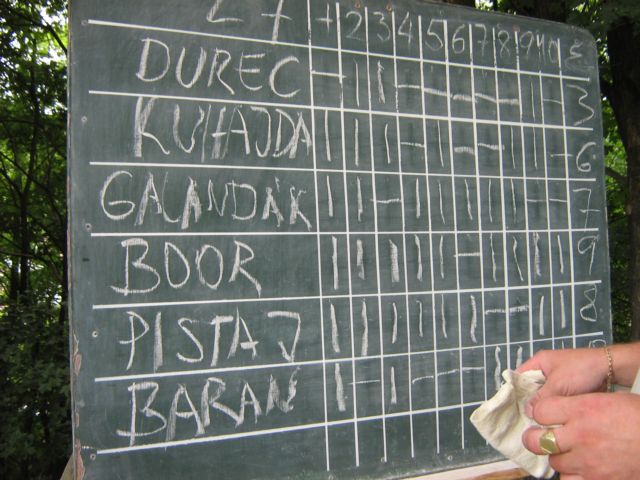 27 1 2 3 4 5 6 7 8 9 10 Σ
DUREC - | | - - - - - | - 3
KUHAJDA | | | - | - - | | - 6
GALANDÁK | | - | | | | | - - 7
BOOR | | | | | - | | | | 9
PISTAJ | | | | | | - - | | 8
BARAN | - | - - - | |